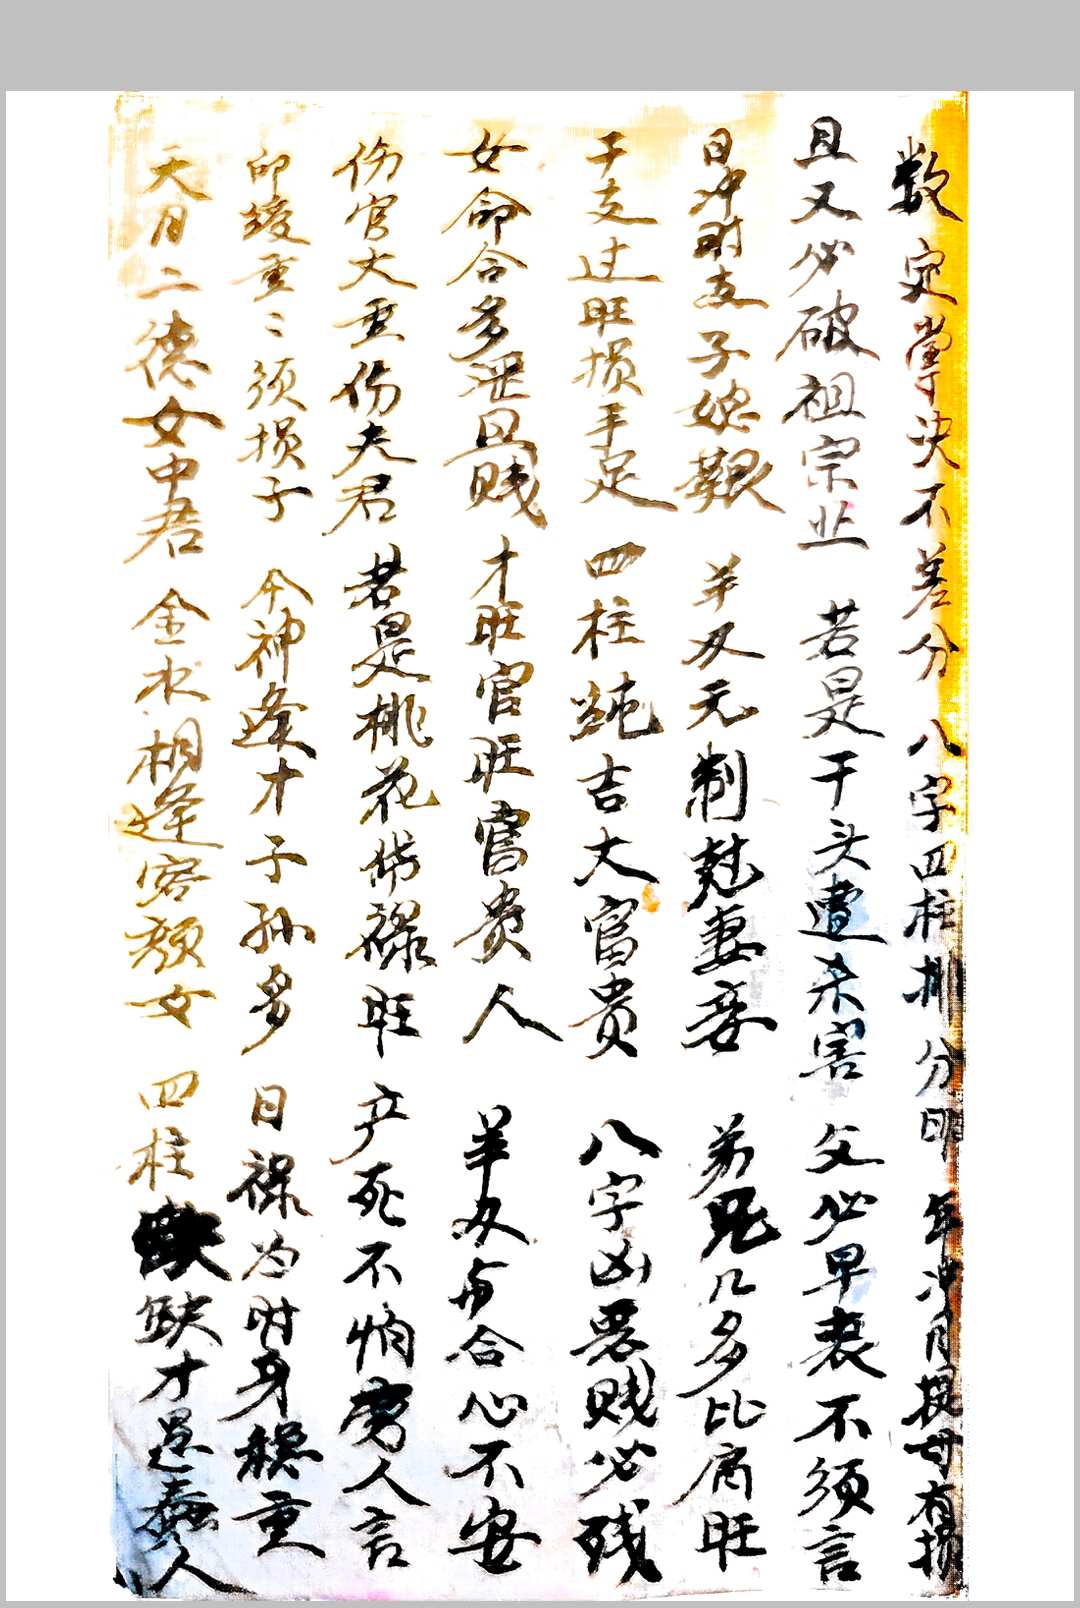 数定掌决不差分 八字四柱排分明 年冲月提母有损
且又必破祖宗业 若是干头遭杀害 父必早丧不须言
日冲时支子媳艰 羊刃无制克妻妾 弟兄几多比肩旺
干支过旺损手足 四柱纯吉大富贵 八字凶恶贱必残
女命合多混且贱 才旺官旺富贵人 羊刃与合心不安
伤官太重伤夫君 若是桃花带禄旺 产死不怕旁人言
印绶重〻须损子 今神逢才子孙多 日禄为时身援重
天月二德女中君 金水相逢容颜女 四柱缺才是蠢人